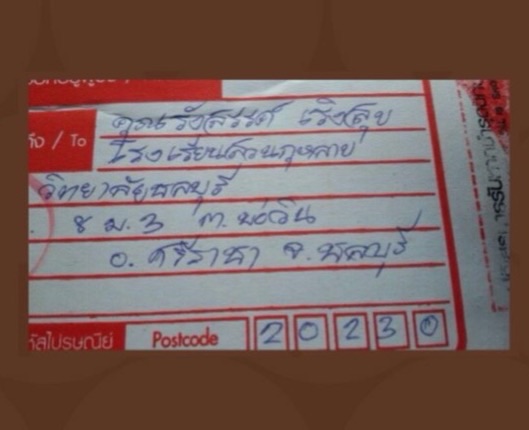 คุณรังสรรค์ เริงสุข
ถึง / To
โรงเรียนสวนกุหลาบ
วิทยาลัยชลบุรี
8 ม.3 ต.บ่อวิน
อ.ศรีราชา จ.ชลบุรี
รหัสไปรษณีย์ Postcode 20230